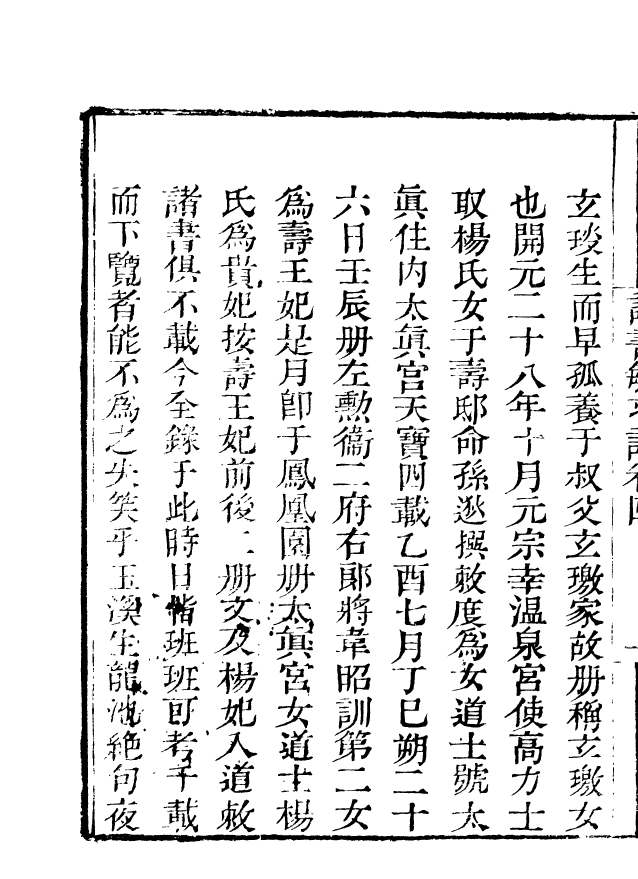 玄琰生而早孤養于叔父玄璬家故册稱玄璬女
也開元二十八年十月元宗幸温泉宮使高力士
取楊氏女于壽邸命孫逖撰敕度為女道士號太
眞住内太眞宫天寶四載乙酉七月丁巳朔二十
六日壬辰册左勲衞二府右郞將韋昭訓第二女
為壽王妃是月卽于鳳凰園册太眞宮女道士楊
氏為貴妃按壽王妃前後二册文及楊妃入道敕
諸書俱不載今全錄于此時日偕班班可考千載
而下覽者能不為之失笑乎玉溪生龍池絶句夜